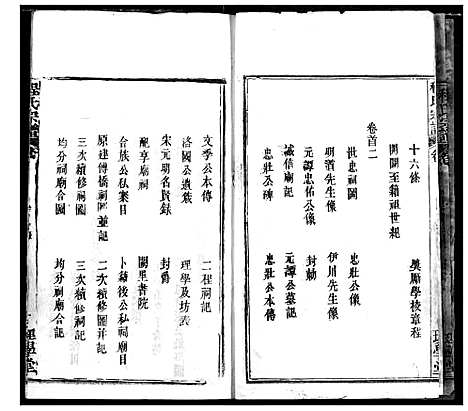 十六條
開闢至籍祖世紀　奠顯學校章程
卷首二
世忠祠圖　忠壯公像
明道先生像　伊川先生像
元譚忠佑公像　封勅
誠信廟記　元譚公墓記
忠壯公碑　忠壯公本傳
文季公本傳　二程祠記
洛國公遺蹟　理學及坊表
宋元明名賢錄　封爵
配享廟祠　闕里書院
合族公私案目　卜鑄後公私祠廟目
原建傅橋祠圖並記　二次續修圖并記
三次續修祠圖　三次續修祠記
均分祠廟合圖　均分祠廟合記
程氏宗譜
理學堂